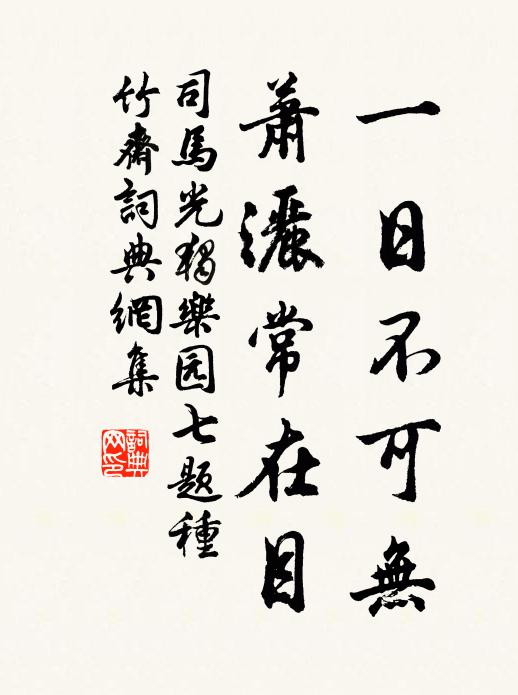 一日不可無
蕭灑常在目
司馬光獨樂园七题種
竹齋詞典網集
詞典网印